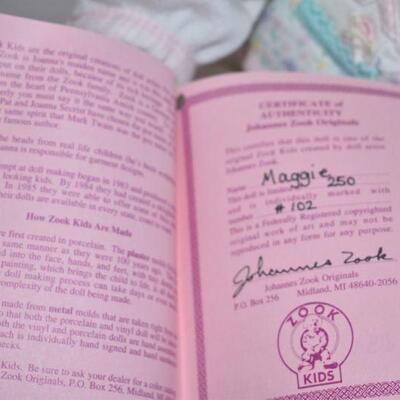 Kids are the original creations of doll
Zook is Joanna's maiden name and it was
put on their dolls, because of its
name from the Zook family.
the heart of Pennsylvania Amish
must say it the same way you would
Pat and Joanna Secrist have chosen the
same spirit that Mark Twain was the
famous author.
the heads from real life children (he's been
anna is responsible for garment design.
mpt at doll making began in 1983 and produced
looking kids. By 1984 they had created a
In 1985 they were able to offer some of
their dolls are available in every state, coast to
How Zook Kids Are Made
are first created in porcelain. The plaster
same manner as they were 100 years ago.
ed into the face, hands, and feet, with each
painting, which brings the child to life. A
doll making process can take days or even
complexity of the doll being made.
made from metal molds that are taken right from
so that both the porcelain and vinyl doll will be
both the vinyl and porcelain dolls are hand
ach is individually hand signed and hand
hecks.
Kids. Be sure to ask your dealer for a color
Zook Originals, P.O. Box 256, Midland, MI
CERTIFICATE of
AUTHENTICITY
Johannes Zook Originals
This certifies that this doll is one of the
original Zook Kids created by doll artist
Johannes Zook.
Name Maggie
This doll is limited 250
and is individually marked with
number # 102
This is a Federally Registered copyrighted
original work of art and may not be
reproduced in any form for any purpose.
Johannes Zook
Johannes Zook Originals
P.O. Box 256 Midland, MI 48640-2056
ZOOK
KIDS